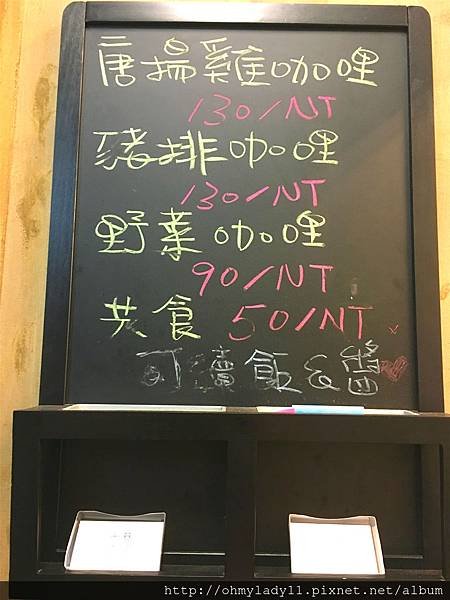 唐揚雞咖哩
130/NT
豬排咖哩
130/NT
野菜咖哩
90/NT
共食 50/NT
可續飯&醬
http://ohmylady11.pixnet.net/album